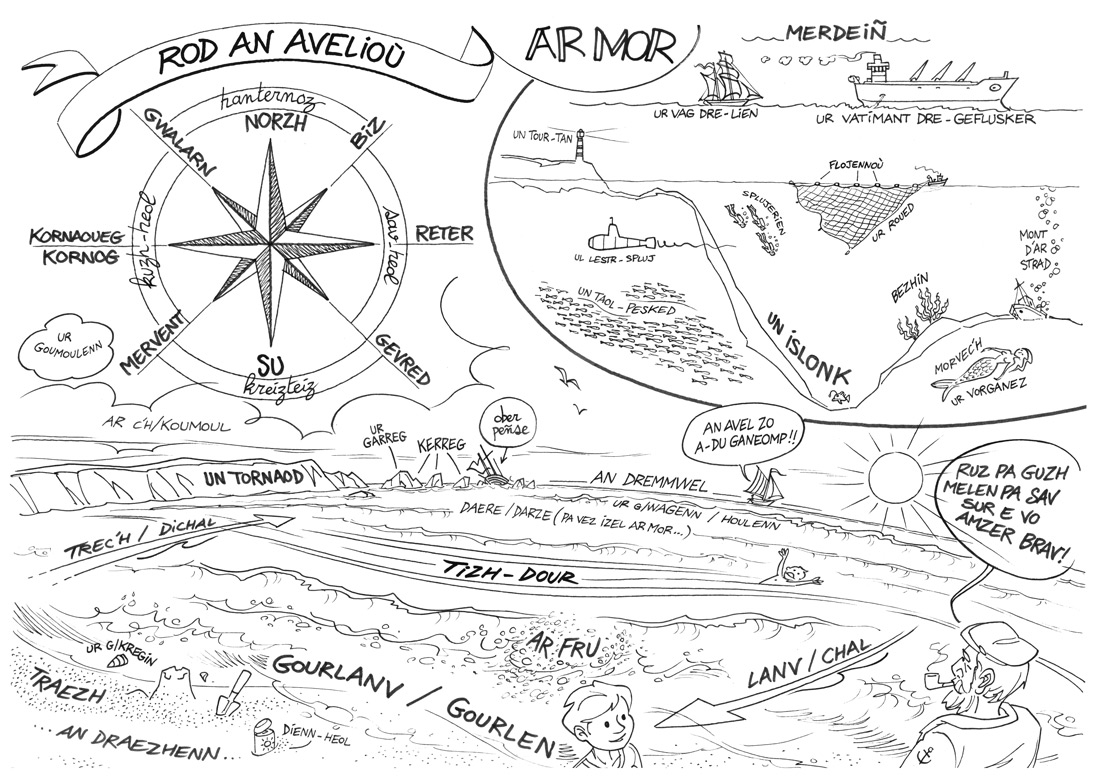 ROD AN AVELIOÙ
hanternoz
NORZH
GWALARN
BIZ
KORNAOUEG
KORNOG
kuzh-heol
sav-heol
RETER
MERVENT
GEVRED
SU
kreizteiz
UR
GOUMOULENN
AR C'H/KOUMOUL
AR MOR
MERDEIÑ
UR VAG DRE-LIEN
UR VATIMANT DRE-GEFLUSKER
UN TOUR-TAN
FLOJENNOÙ
SPLUJERIEN
UR ROUED
MONT
D'AR
STRAD
UL LESTR-SPLUJ
UN TAOL-PESKED
BEZHIN
UN ISLONK
MORVEC'H
UR VORGANEZ
UR
GARREG
KERREG
ober
peñse
AN AVEL ZO
A-DU GANEOMP!!
UN TORNAOD
AN DREMMWEL
UR G/WAGENN / HOULENN
DAERE/DARZE (PA VEZ IZEL AR MOR...)
RUZ PA GUZH
MELEN PA SAV
SUR E VO
AMZER BRAV!
TREC'H / DICHAL
TIZH-DOUR
UR G/KREGIN
AR FRU
LANV / CHAL
TRAEZH
GOURLANV / GOURLEN
... AN DRAEZHENN...
DIENN-HEOL